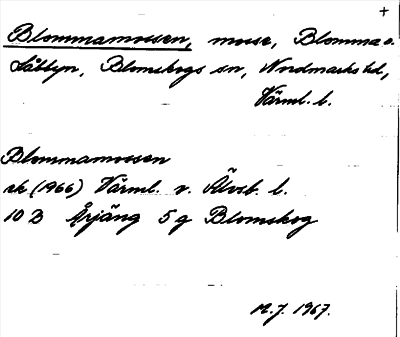 +
Blommamossen, mosse, Blomma o.
Låbbyn, Blomskogs sn, Nordmarks hd,
Värml. l.
Blommamossen
ek (1966) Värml. o. Älvsb. l.
10 B Årjäng 5 g Blomskog
1967.